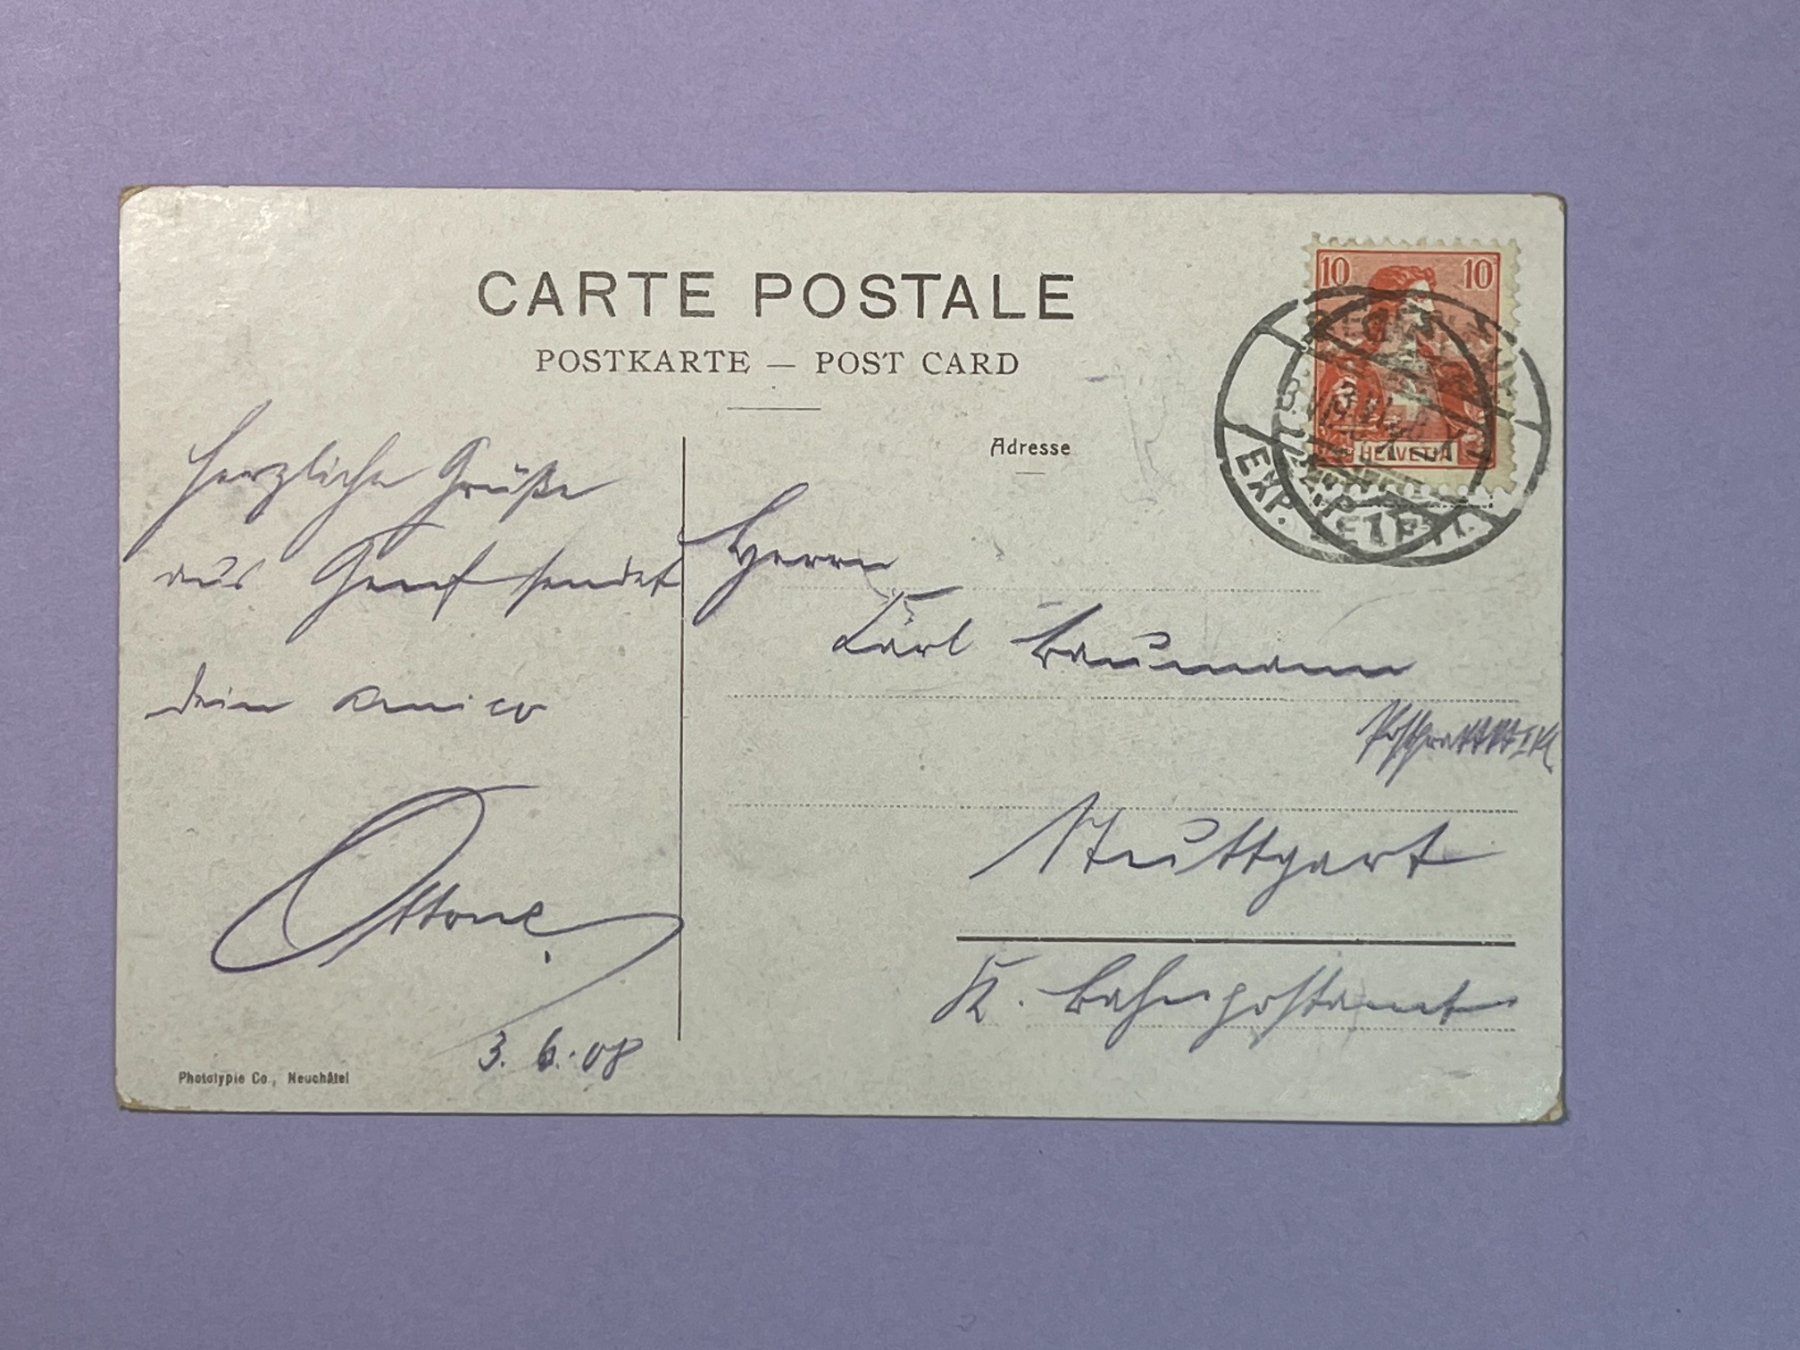 CARTE POSTALE
POSTKARTE — POST CARD
Adresse
10 10
HELVETIA
EXP. LETT.
Herzliche Grüße
aus Genf sendet
dein amico
Ottone.
3.6.08
Herrn
Karl Baumann
Stuttgart
K. Bahnpostamt
Phototypie Co., Neuchâtel